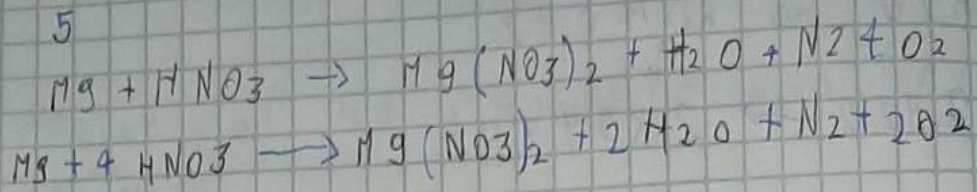 5
Mg + HNO3 → Mg(NO3)2 + H2O + N2 + O2
Mg + 4 HNO3 → Mg(NO3)2 + 2H2O + N2 + 2O2